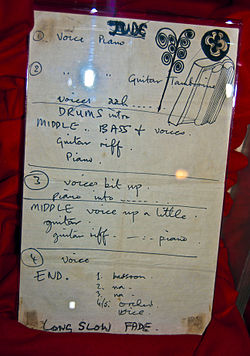 JUDE
① Voice Piano
②
" " " Guitar Tambourine
voices aah ....
DRUMS intro
MIDDLE .. BASS + voices.
Guitar riff.
Piano
③ voices bit up.
Piano into ......
MIDDLE voice up a little.
guitar.
guitar riff .... piano.
④ voice
END. 1. bassoon
2. na..
3. na..
4/5:
voice.
LONG SLOW FADE.